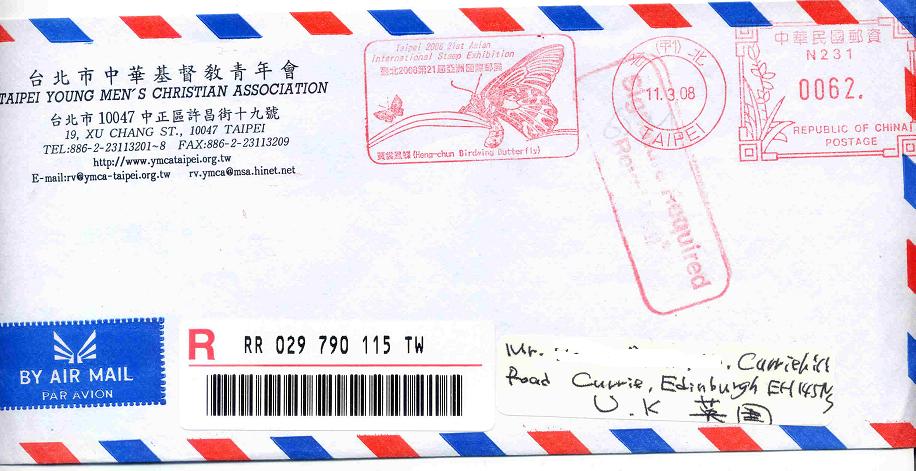 台北市中華基督教青年會
TAIPEI YOUNG MEN'S CHRISTIAN ASSOCIATION
台北市10047中正區許昌街十九號
19, XU CHANG ST., 10047 TAIPEI
TEL:886-2-23113201~8 FAX:886-2-23113209
http://www.ymcataipei.org.tw
E-mail:rv@ymca-taipei.org.tw rv.ymca@msa.hinet.net
Taipei 2008 21st Asian
International Stamp Exhibition
臺北2008第21屆亞洲國際郵展
黃裳鳳蝶 (Heng-chun Birdwing Butterfly)
北
11.3.08
TAIPEI
中華民國郵資
N231
0062.
REPUBLIC OF CHINA
POSTAGE
Signature Required
BY AIR MAIL
PAR AVION
R RR 029 790 115 TW
Mr. Curriehill
Road Currie, Edinburgh EH14 5N
U.K 英国